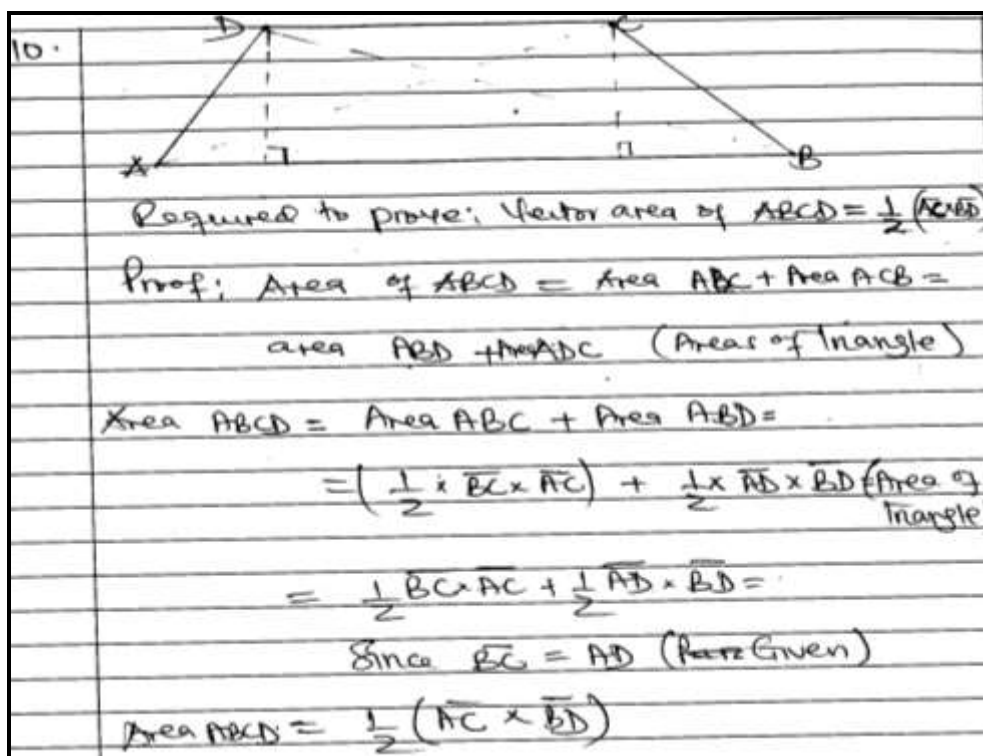 D C
10.
A B
Required to prove: Vector area of ABCD = 1/2 (AC̅×BD̅)
Proof: Area of ABCD = Area ABC + Area ACB =
area ABD + Area ADC (Areas of Triangle)
Area ABCD = Area ABC + Area ABD =
= (1/2 × B̅C̅ × A̅C̅) + 1/2 × A̅D̅ × B̅D̅ (Area of
Triangle
= 1/2 B̅C̅ × A̅C̅ + 1/2 A̅D̅ × B̅D̅ =
Since B̅C̅ = AD (Given)
Area ABCD = 1/2 (A̅C̅ × B̅D̅)